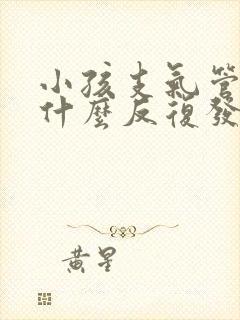 小孩支气管
什麼反復發
黄星